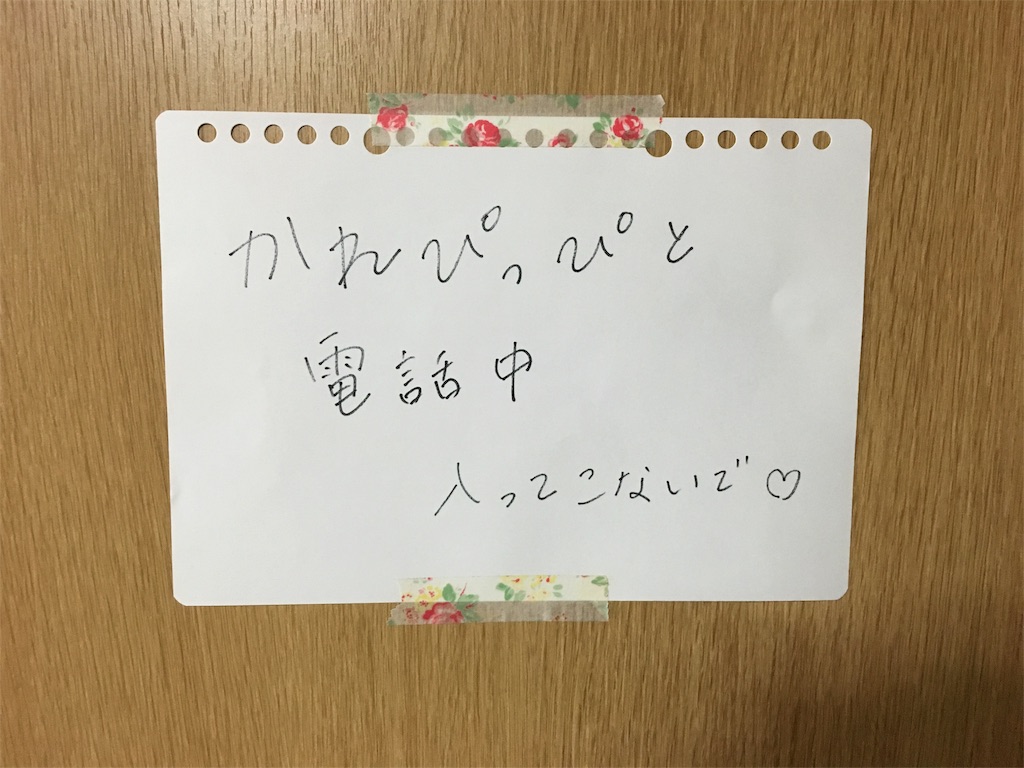 かれぴっぴと
電話中
入ってこないで♡